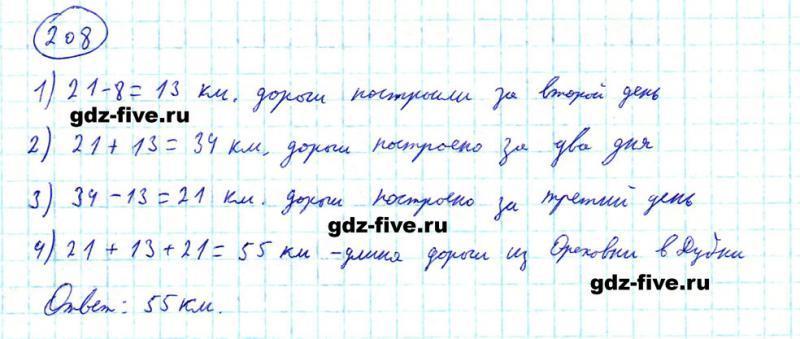 208
1) 21-8= 13 км. дороги построили за второй день
gdz-five.ru
2) 21 + 13 = 34 км. дороги построено за два дня
3) 34 - 13 = 21 км. дороги построено за третий день
gdz-five.ru
4) 21 + 13 + 21 = 55 км - длина дороги из Ореховки в Дубки
gdz-five.ru
Ответ: 55 км.